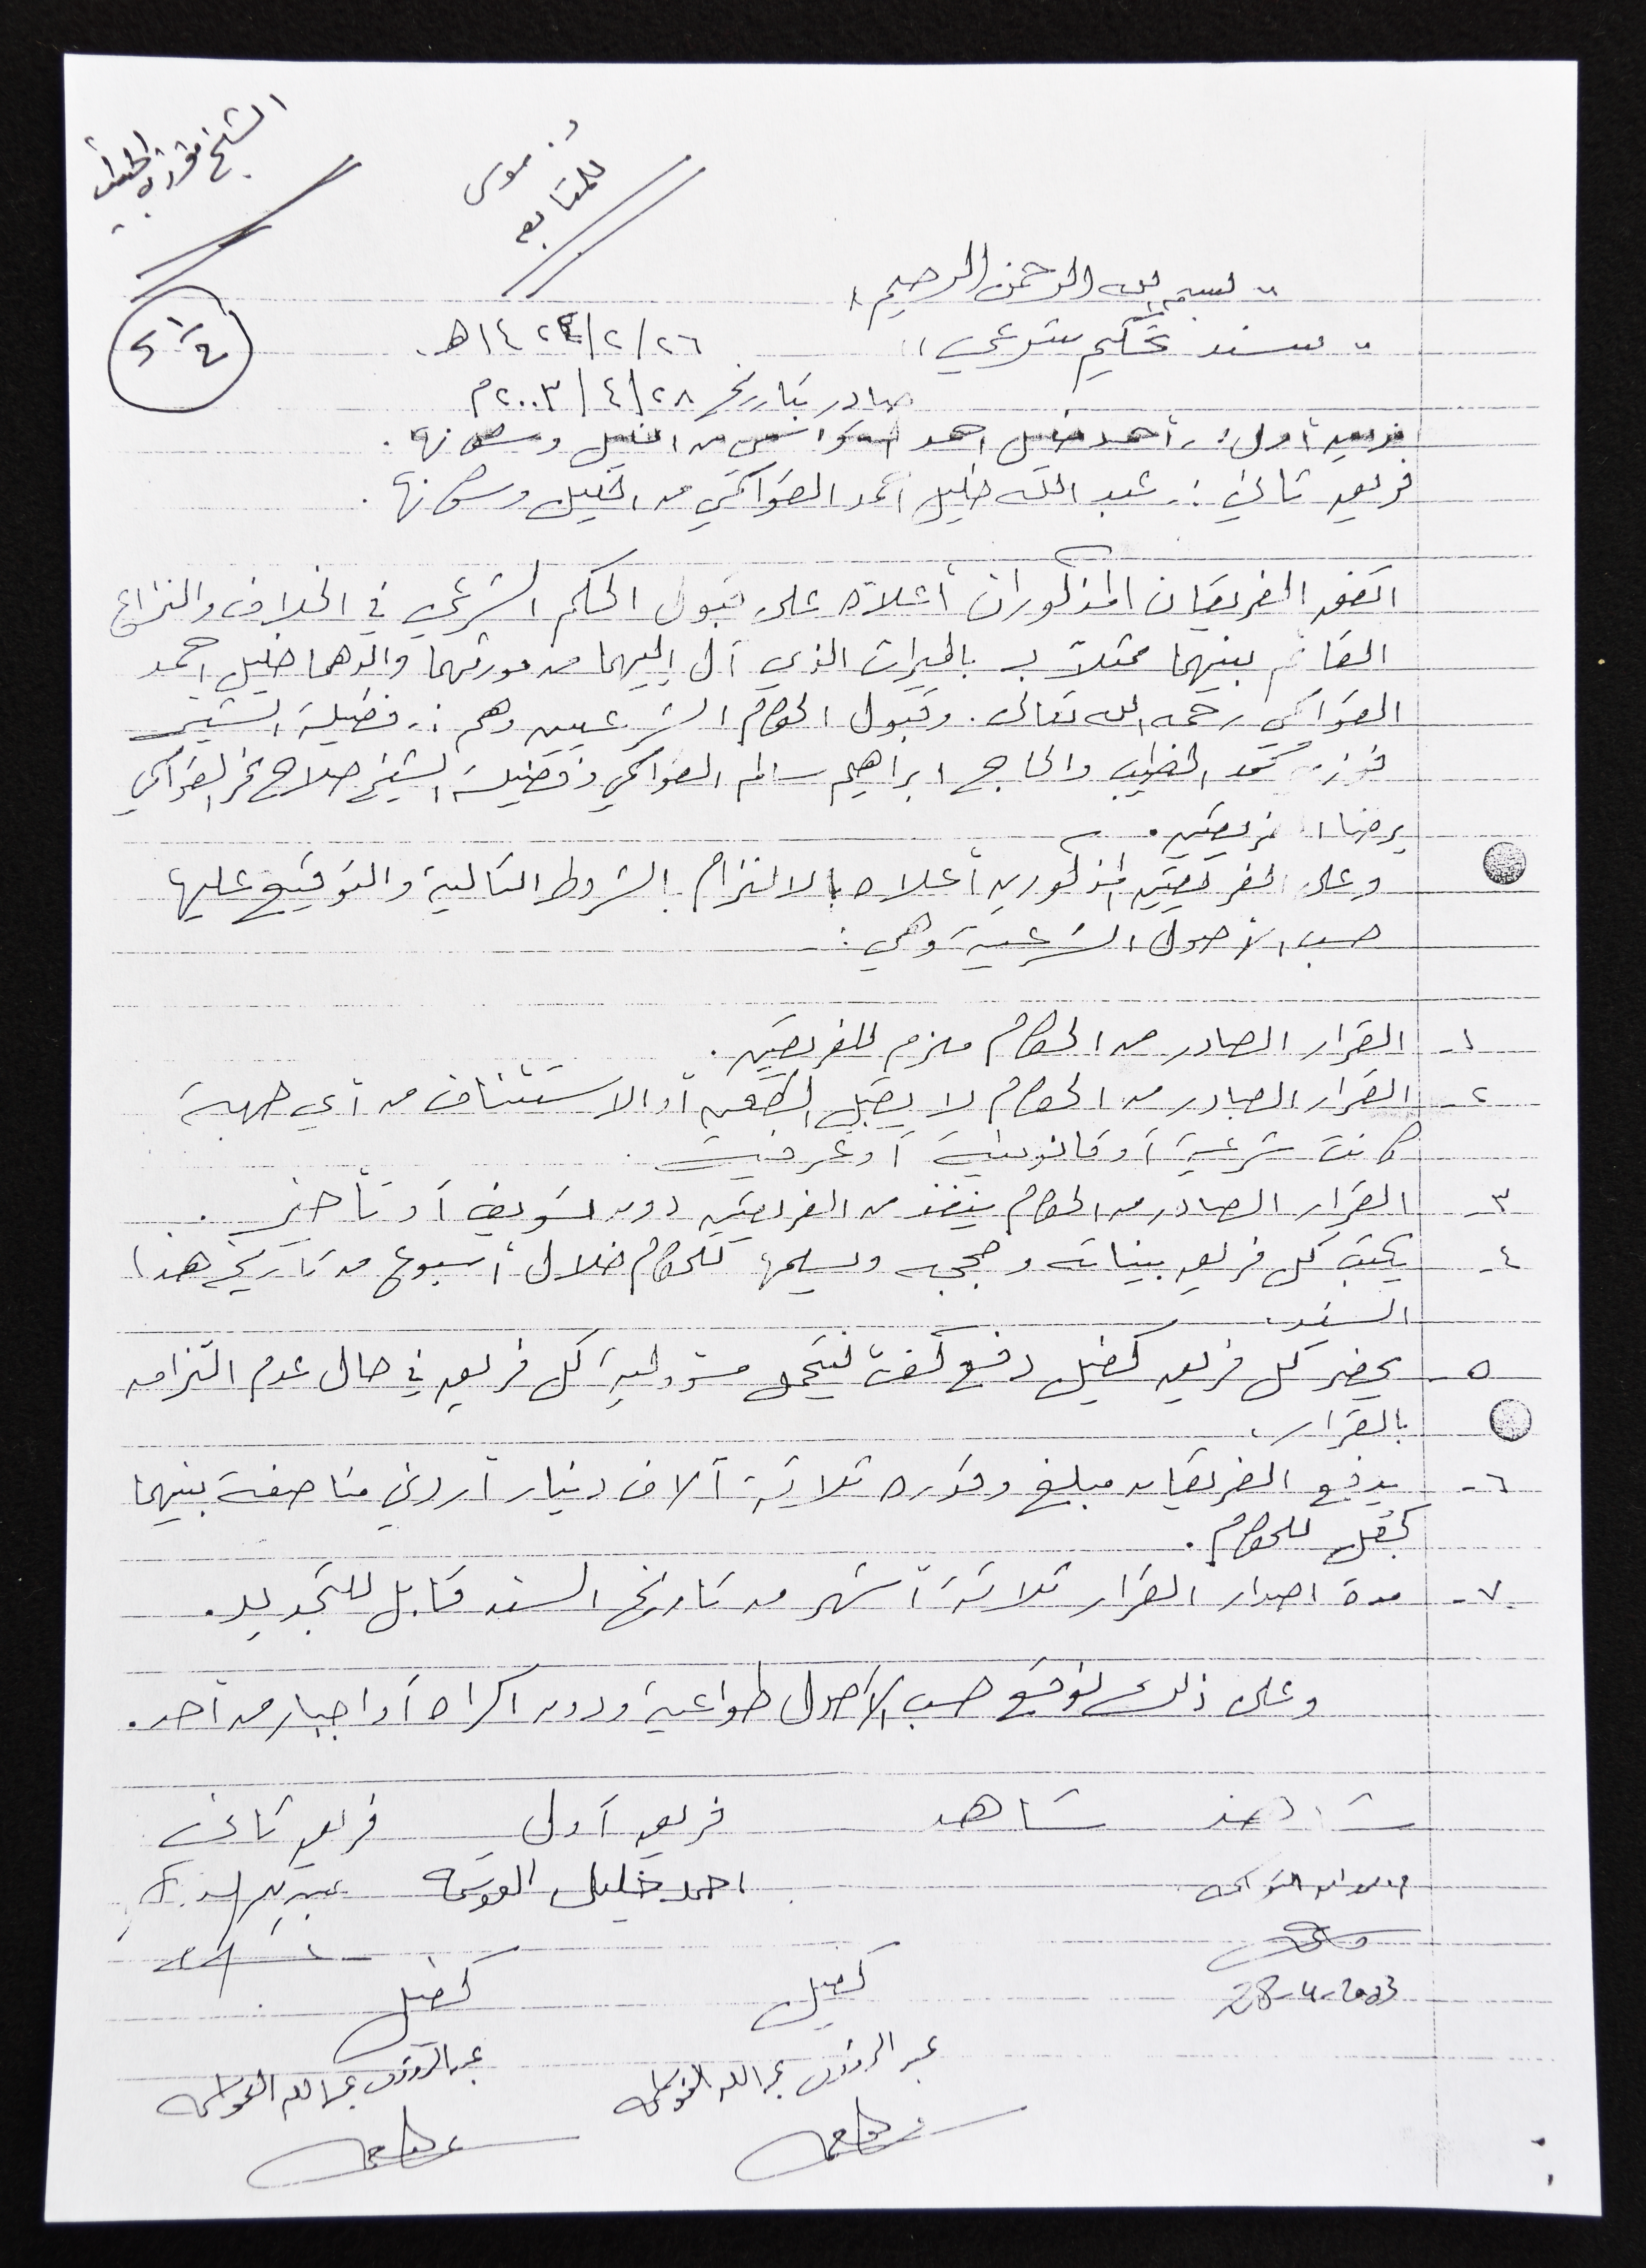 الشيخ فوزي الخطيب
د. موسى
للمتابعة
" بسم الله الرحمن الرحيم "
" سند تحكيم شرعي "
٢٦/٢/١٤٢٤هـ.
صادر بتاريخ ٢٨/٤/٢٠٠٣م
فريق أول: أحمد خليل احمد الفواكهي من الخليل وسكانها.
فريق ثاني: عبد الله خليل أحمد الفواكهي من الخليل وسكانها.
اتفق الفريقان المذكوران أعلاه على قبول الحكم الشرعي في الخلاف والنزاع
القائم بينهما ممثلاً بـ بالميراث الذي آل إليهما من مورثهما والدهما خليل احمد
الفواكهي رحمه الله تعالى. وقبول الحكام الشرعيين وهم: فضيلة الشيخ
فوزي محمد الخطيب والحاج ابراهيم سالم الفواكهي وفضيلة الشيخ صلاح الفواكهي
برضا الفريقين.
وعلى الفريقين المذكورين أعلاه بالالتزام بالشروط التالية والتوقيع عليها
حسب الأصول الشرعية وهي:
١- القرار الصادر من الحكام ملزم للفريقين.
٢- القرار الصادر من الحكام لا يقبل الطعن أو الاستئناف من أي جهة
كانت شرعية أو قانونية أو عرفية.
٣- القرار الصادر من الحكام ينفذ من الفريقين دون تسويف أو تأخير.
٤- يكتب كل فريق بيناته وحججه ويسلمها للحكام خلال أسبوع من تاريخ هذا
السند.
٥- يحضر كل فريق كفيل دفع ليتحمل مسؤولية كل فريق في حال عدم التزامه
بالقرار.
٦- يدفع الفريقان مبلغ وقدره ثلاثة آلاف دينار أردني مناصفة بينهما
كجعل للحكام.
٧- مدة اصدار القرار ثلاثة أشهر من تاريخ السند قابل للتجديد.
وعلى ذلك نوقع حسب الأصول طواعية ودون اكراه أو اجبار من أحد.
شاهد شاهد فريق أول فريق ثاني
احمد خليل
28-4-2003
كفيل كفيل
عبد الرزاق عبد الله عبد الرزاق عبد الله